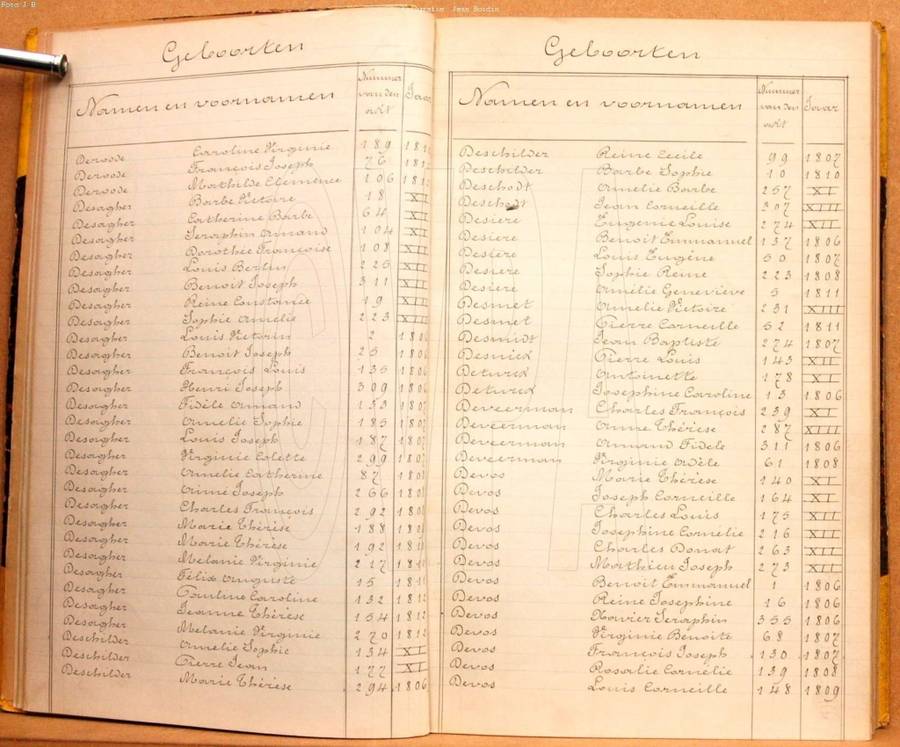 Foto J B
Jean Boudin
Geboorten
Namen en voornamen Nummer van den akt Jaar
Deroode Caroline Virginie 189
Deroode François Joseph 76
Deroode Mathilde Clemence 106
Desagher Barbe Victoire 18 XI
Desagher Catherine Barbe 64 XII
Desagher Seraphin Amand 104 XI
Desagher Dorothée Françoise 108 XII
Desagher Louis Bertin 225 XII
Desagher Benoit Joseph 311 XII
Desagher Reine Constance 19 XII
Desagher Sophie Amelie 223 XIII
Desagher Louis Victorin 2
Desagher Benoit Joseph 25
Desagher François Louis 135
Desagher Henri Joseph 309
Desagher Fidèle Amand 133
Desagher Amelie Sophie 185
Desagher Louis Joseph 187
Desagher Virginie Colette 299
Desagher Amelie Catherine 87
Desagher Anne Joseph 266
Desagher Charles François 292
Desagher Marie Thérèse 188
Desagher Marie Thérèse 192
Desagher Melanie Virginie 217
Desagher Félix Auguste 15
Desagher Pauline Caroline 132 1812
Desagher Jeanne Thérèse 154 1812
Desagher Melanie Virginie 270 1812
Deschilder Amelie Sophie 134 XI
Deschilder Pierre Jean 177 XI
Deschilder Marie Thérèse 294 1806
Geboorten
Namen en voornamen Nummer van den akt Jaar
Deschilder Reine Cecile 99 1807
Deschilder Barbe Sophie 10 1810
Deschodt Amelie Barbe 257 XI
Deschodt Jean Corneille 307 XIII
Desiere Eugenie Louise 274 XII
Desiere Benoit Emmanuel 137 1806
Desiere Louis Eugène 50 1807
Desiere Sophie Reine 223 1808
Desiere Amélie Geneviève 5 1811
Desmet Amelie Victoire 231 XIII
Desmet Pierre Corneille 52 1811
Desmidt Jean Baptiste 274 1807
Desnick Pierre Louis 143 XII
Deturck Antoinette 178 XI
Deturck Josephine Caroline 13 1806
Deveerman Charles François 239 XI
Deveerman Anne Thérèse 287 XIII
Deveerman Amand Fidele 311 1806
Deveerman Virginie Adèle 61 1808
Devos Marie Thérèse 140 XI
Devos Joseph Corneille 164 XI
Devos Charles Louis 175 XII
Devos Josephine Cornélie 216 XII
Devos Charles Donat 263 XII
Devos Mathieu Joseph 273 XII
Devos Benoit Emmanuel 1 1806
Devos Reine Josephine 16 1806
Devos Xavier Seraphin 355 1806
Devos Virginie Benoite 68 1807
Devos François Joseph 130 1807
Devos Rosalie Cornélie 139 1808
Devos Louis Corneille 148 1809